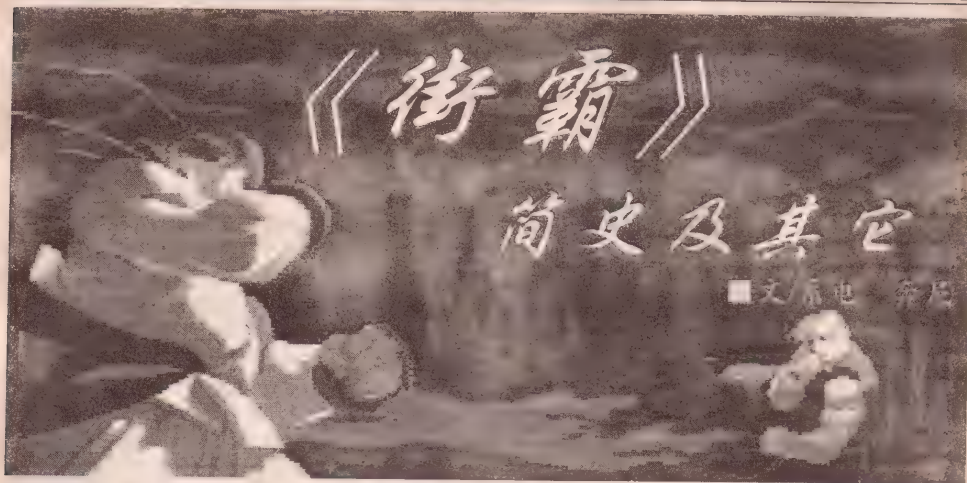 《街霸》
简史及其它
■文/